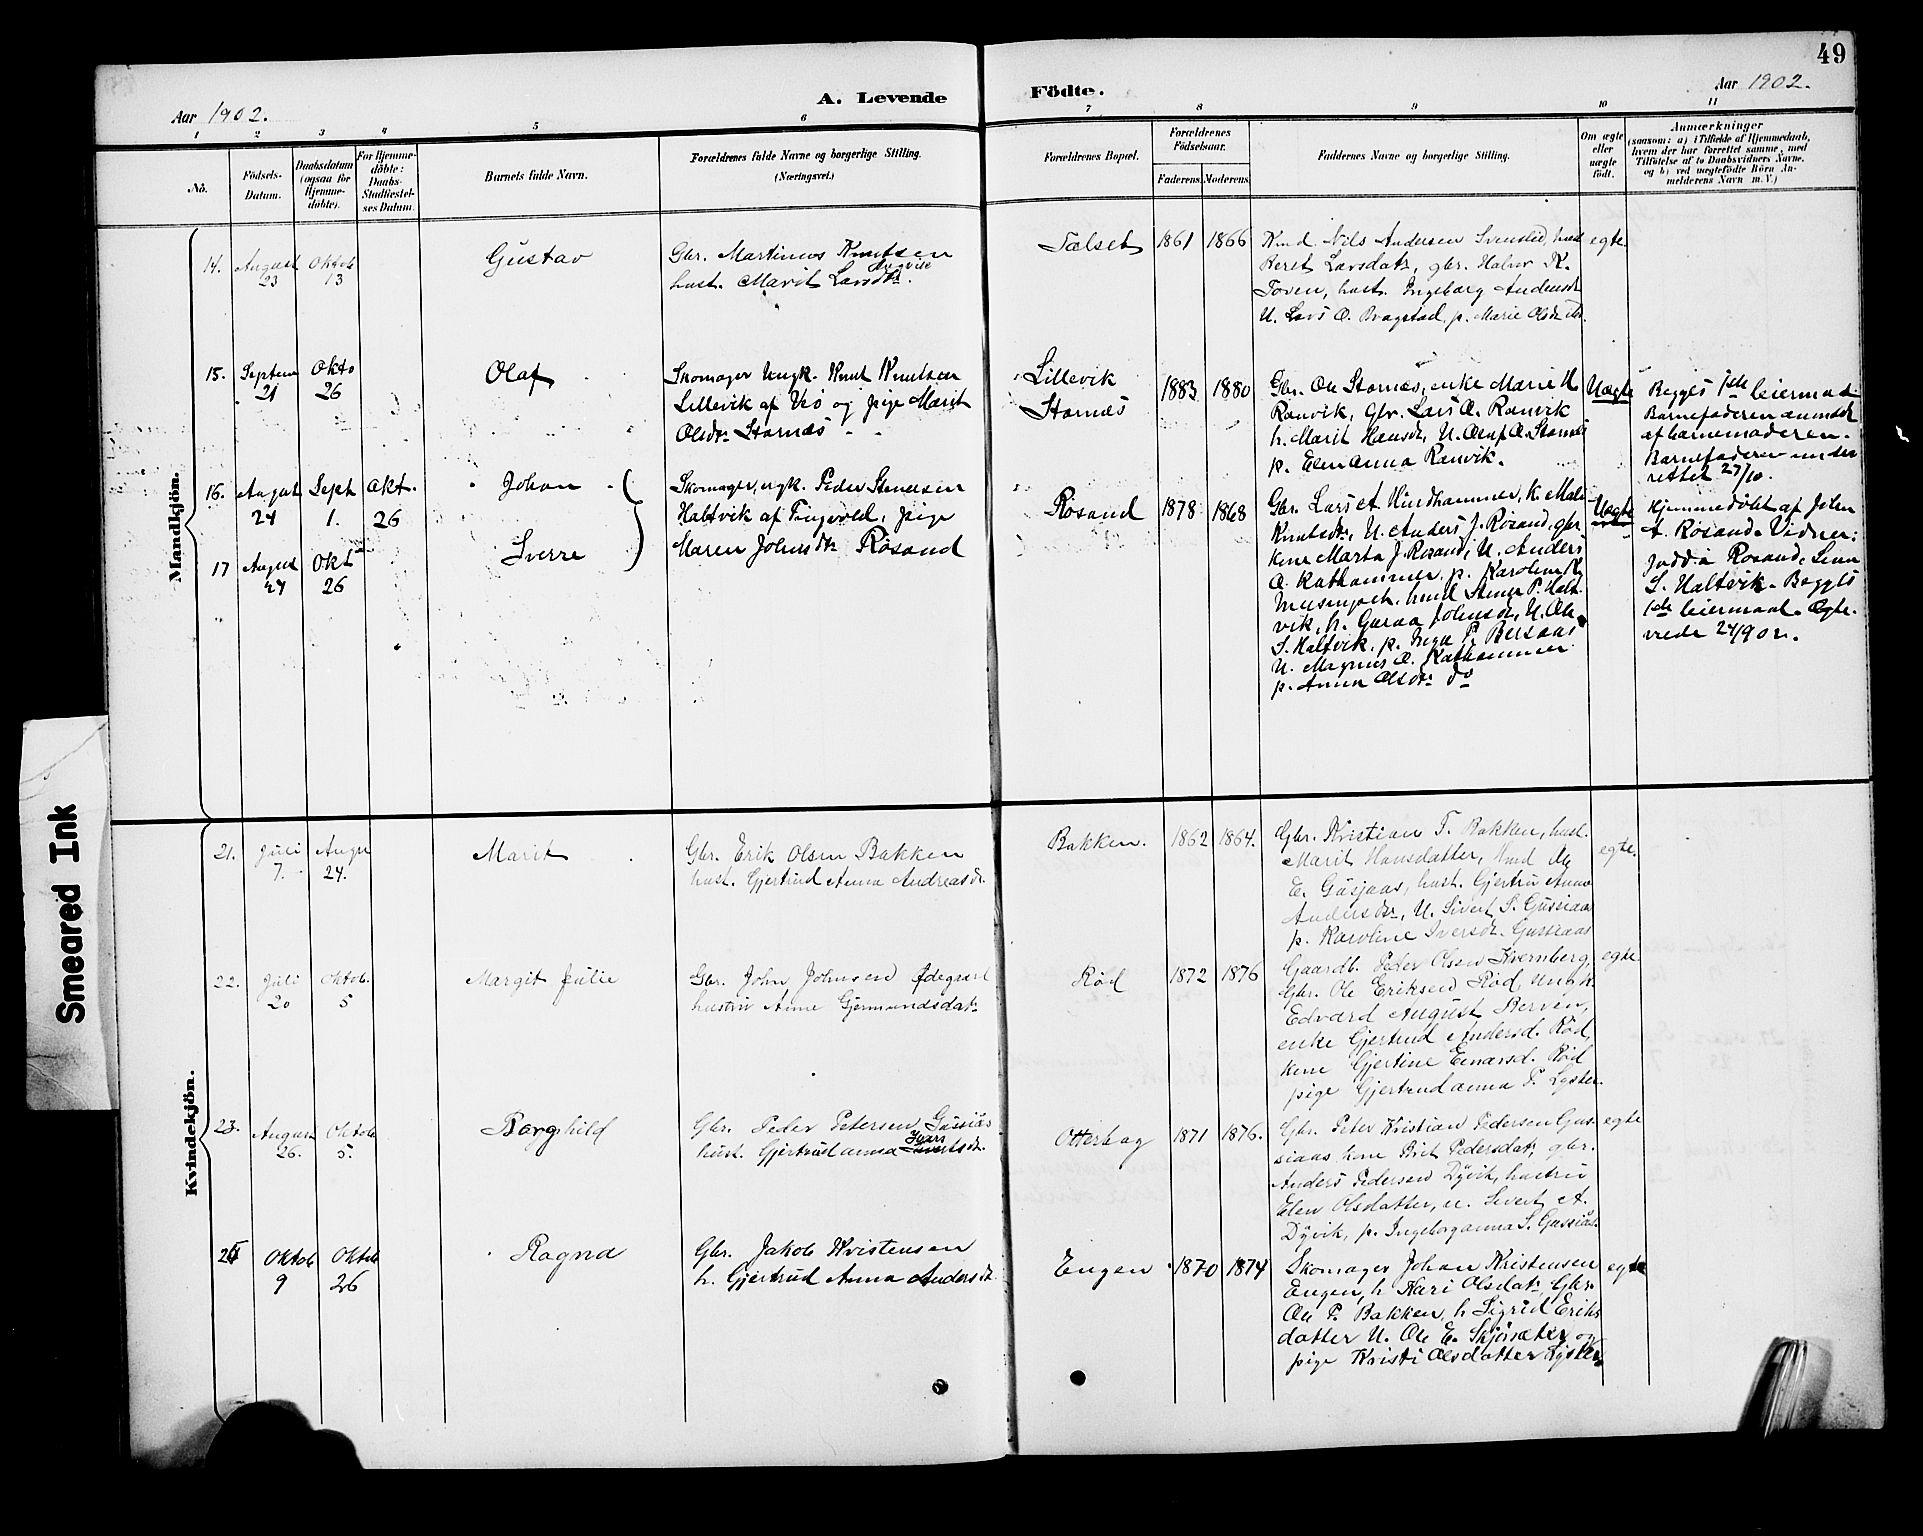 49
Aar 1902.
A. Levende Födte.
Aar 1902.
1 2 3 4 5 6 7 8 9 10 11
No.
Födsels-Datum.
Daabsdatum (ogsaa for Hjemme-döbte).
For Hjemme-döbte: Daabs-Stadfæstel-ses Datum.
Barnets fulde Navn.
Forældrenes fulde Navne og borgerlige Stilling.
(Næringsvei.)
Forældrenes Bopæl.
Forældrenes Födselsaar.
Faderens. Moderens.
Faddernes Navne og borgerlige Stilling.
Om ægte eller uægte födt.
Anmærkninger
(saasom: a) i Tilfælde af Hjemmedaab, hvem der har forrettet samme, med Tilföielse af to Daabsvidners Navne, og b) ved uægtefödte Börn Anmelderens Navn m. V.)
Mandkjön.
14. August 23 Oktob 13 Gustav
Gbr. Martinus Knutsen
hust. Marit Larsdtr.
Talset 1861 1866
Kmd. Nils Andersen Svensli, hust
Beret Larsdatr, gbr. Halvor K.
Toven, hust. Ingeborg Andersdr
U. Lars O. Bragstad, p. Marie Olsdr
egte.
15. Septem 21 Okto 26 Olaf
Skomager Ungk. Knut Knutsen
Lillevik af Veö og pige Marit
Olsdtr Stornæs
Lillevik
Stornæs
1883 1880
Gbr. Ole Stornæs, enke Marie H.
Ranvik, Gbr. Lars O. Ranvik
h. Marit Hansdr, U. Oluf O. Stornæs
p. Elen Anna Ranvik.
Uægte
Begges 1ste leiermaal
Barnefaderen anmeldt
af barnemoderen.
Barnefaderen under
rettet 27/10.
16. August 24 Sept 1. Okt. 26 Johan
17 August 24 Okt 26 Sverre
Skomager, ugk. Peder Stenersen
Haltvik af Tingvold, pige
Maren Johnsdtr Røsand
Røsand 1878 1868
Gbr. Lars A. Hindhammer, k. Mali
Knutsdr, U. Anders J. Røsand, gbr
kone Marta J. Røsand, U. Anders
O. Kathammer, p. Karoline K.
vik, h. Guraa Johnsdr, U. Ole
S. Haltvik, p. Inga P. Bersaas
U. Magnus O. Kathammer
p. Anna Olsdtr do
Uægte
Hjemmedøbt af John
A. Røsand. Vidner:
Røsand, Lina
S. Haltvik. Begges
1ste leiermaal. Egte-
viede 24/9 02.
Kvindekjön.
21. Juli 7. Augu 24. Marit
Gbr. Erik Olsen Bakken
hust. Gjertrud Anna Andreasdr.
Bakken. 1862 1864.
Gbr. Kristian T. Bakken, hust.
Marit Hansdatter, Kmd Ole
E. Gusjaas, hust. Gjertru Anna
Andersdr, U. Sivert S. Gussiaas
p. Karoline Iversdr. Gussiaas
egte.
22. Juli 20 Oktob. 5 Margit Julie
Gbr. John Johnsen Ødegaard
hustru Anne Gjermundsdatr
Rød 1872 1876
Gaardb. Peter Olsen Kvernberg,
Gbr. Ole Eriksen Rød, ungk.
Edvard August Berven,
enke Gjertrud Andersd. Rød,
kone Gjertine Einarsd. Rød
pige Gjertrud Anna P. Lyster.
egte
23. August 26. Oktob 5. Borghild
Gbr. Peder Petersen Gussiås
hust. Gjertrud Anna Ivars Sivertsdr.
Otterhag 1871 1876.
Gbr. Peter Kristian Pedersen Gus-
siaas, kone Brit Pedersdat, gbr.
Anders Pedersen Dyvik, hustru
Elen Olsdatter, u. Sivert A.
Dyvik, p. Ingeborganna S. Gussiås.
egte
24 Oktob 9 Oktob 26 Ragna
Gbr. Jakob Kristensen
h. Gjertrud Anna Andersdr.
Engen 1870 1874
Skomager Johan Kristensen
Engen, h Kari Olsdatr, Gbr.
Ole T. Bakken, h Sigrid Eriks
datter U. Ole E. Skjøsæter og
pige Kristi Olsdatter Lyster
egte
Smeared Ink